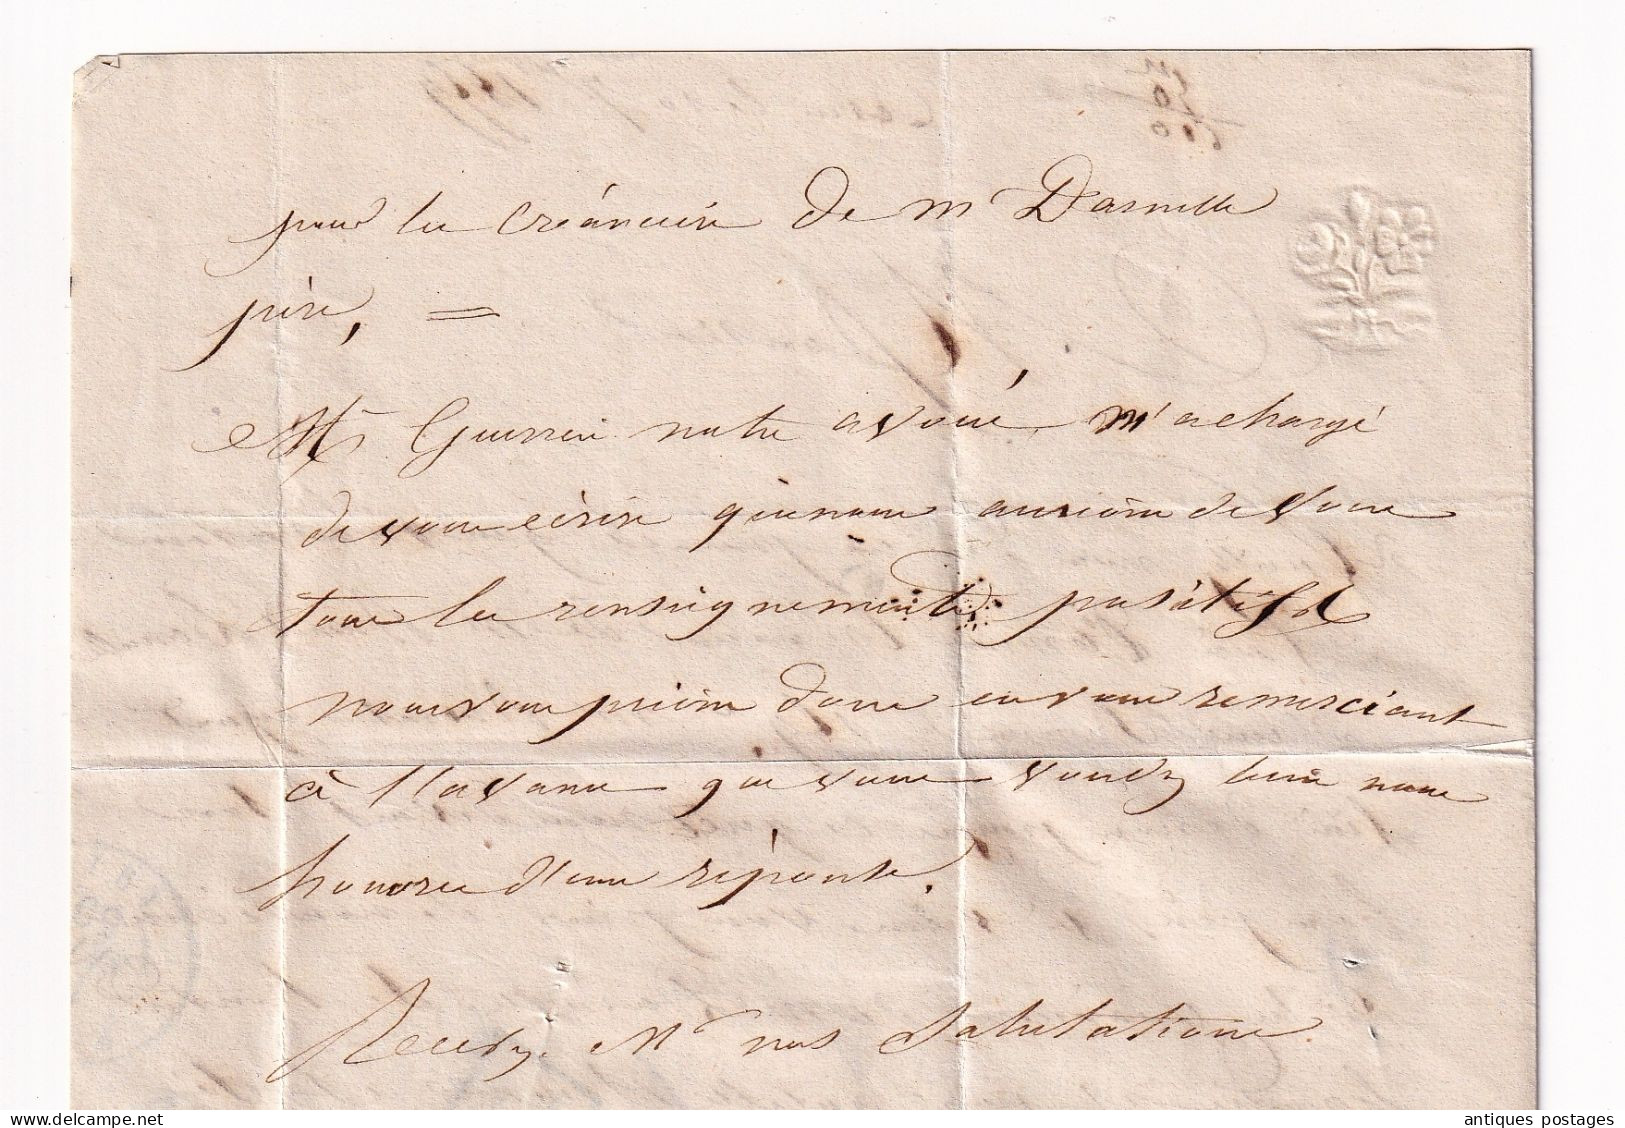 pour les créanciers de M Darnelle
père, =
Mr Guerrin notre avoué, m'a chargé
de vous écrire que nous aurions de vous
tous les renseignements positifs
nous vous prions donc en vous remerciant
à l'avance que vous voudrez bien nous
honorer d'une réponse.
Recevez Mr nos Salutations
delcampe.net
antiques postages